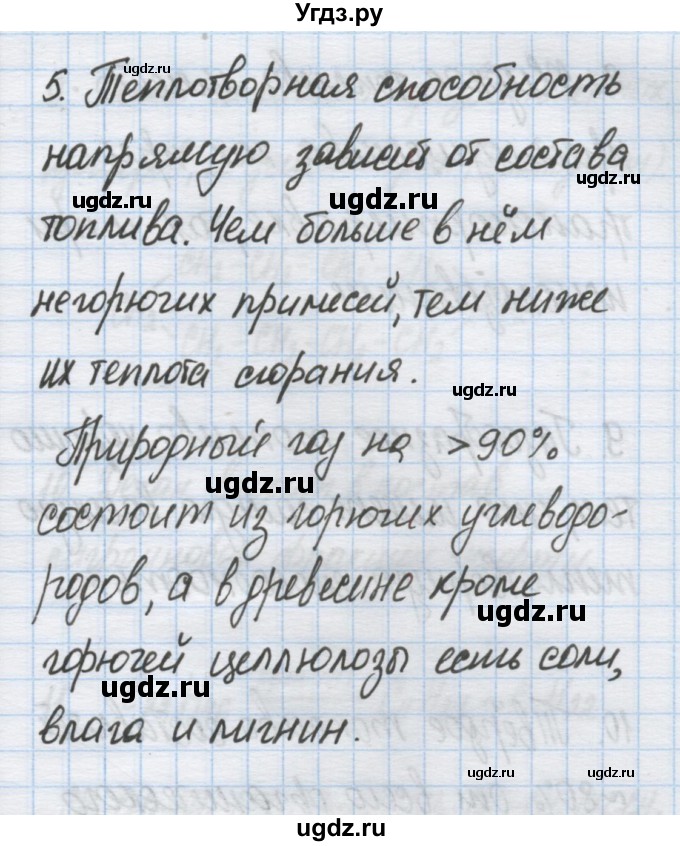 Угдз.ру
ugdz.ru
5. Теплотворная способность
напрямую зависит от состава
ugdz.ru
ugdz.ru ugdz.ru
топлива. Чем больше в нём
негорючих примесей, тем ниже
их теплота сгорания.
ugdz.ru
Природный газ на >90%
ugdz.ru
состоит из горючих углеводо-
родов, а в древесине кроме
ugdz.ru
горючей целлюлозы есть соли,
ugdz.ru
влага и лигнин.
ugdz.ru ugdz.ru
ugdz.ru